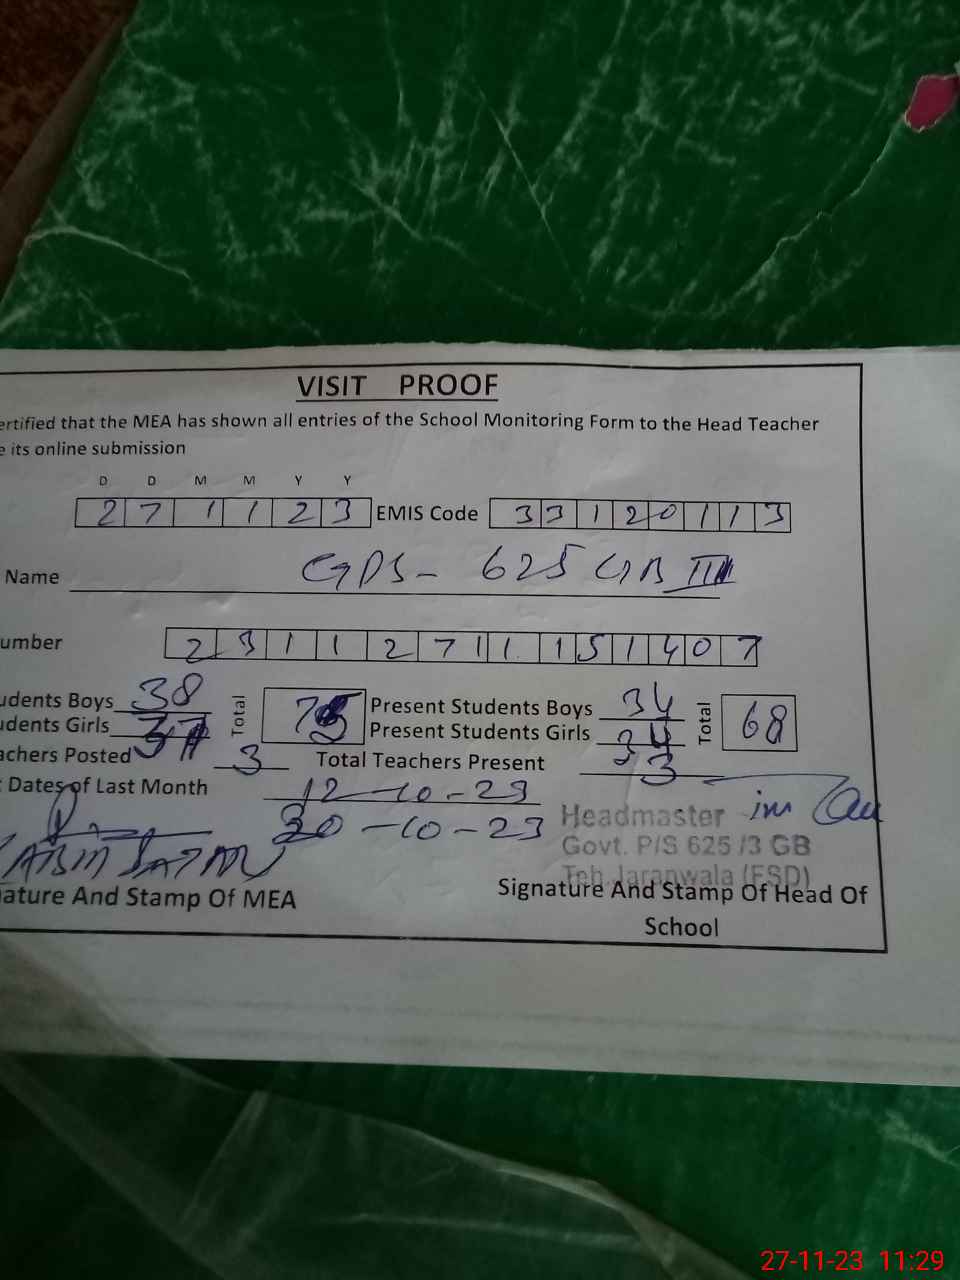 VISIT PROOF
ertified that the MEA has shown all entries of the School Monitoring Form to the Head Teacher
e its online submission
D D M M Y Y
2 7 1 1 2 3 EMIS Code 3 3 1 2 0 1 1 3
Name GPS - 625 GB III
umber 2 3 1 1 2 7 1 1 1 5 1 4 0 7
udents Boys 38 Total 75 Present Students Boys 34 Total 68
udents Girls 37 Present Students Girls 34
achers Posted 3 Total Teachers Present 3
t Dates of Last Month 12-10-23
30-10-23
Headmaster
Govt. P/S 625 /3 GB
Teh Jaranwala (FSD)
ature And Stamp Of MEA
Signature And Stamp Of Head Of
School
27-11-23 11:29